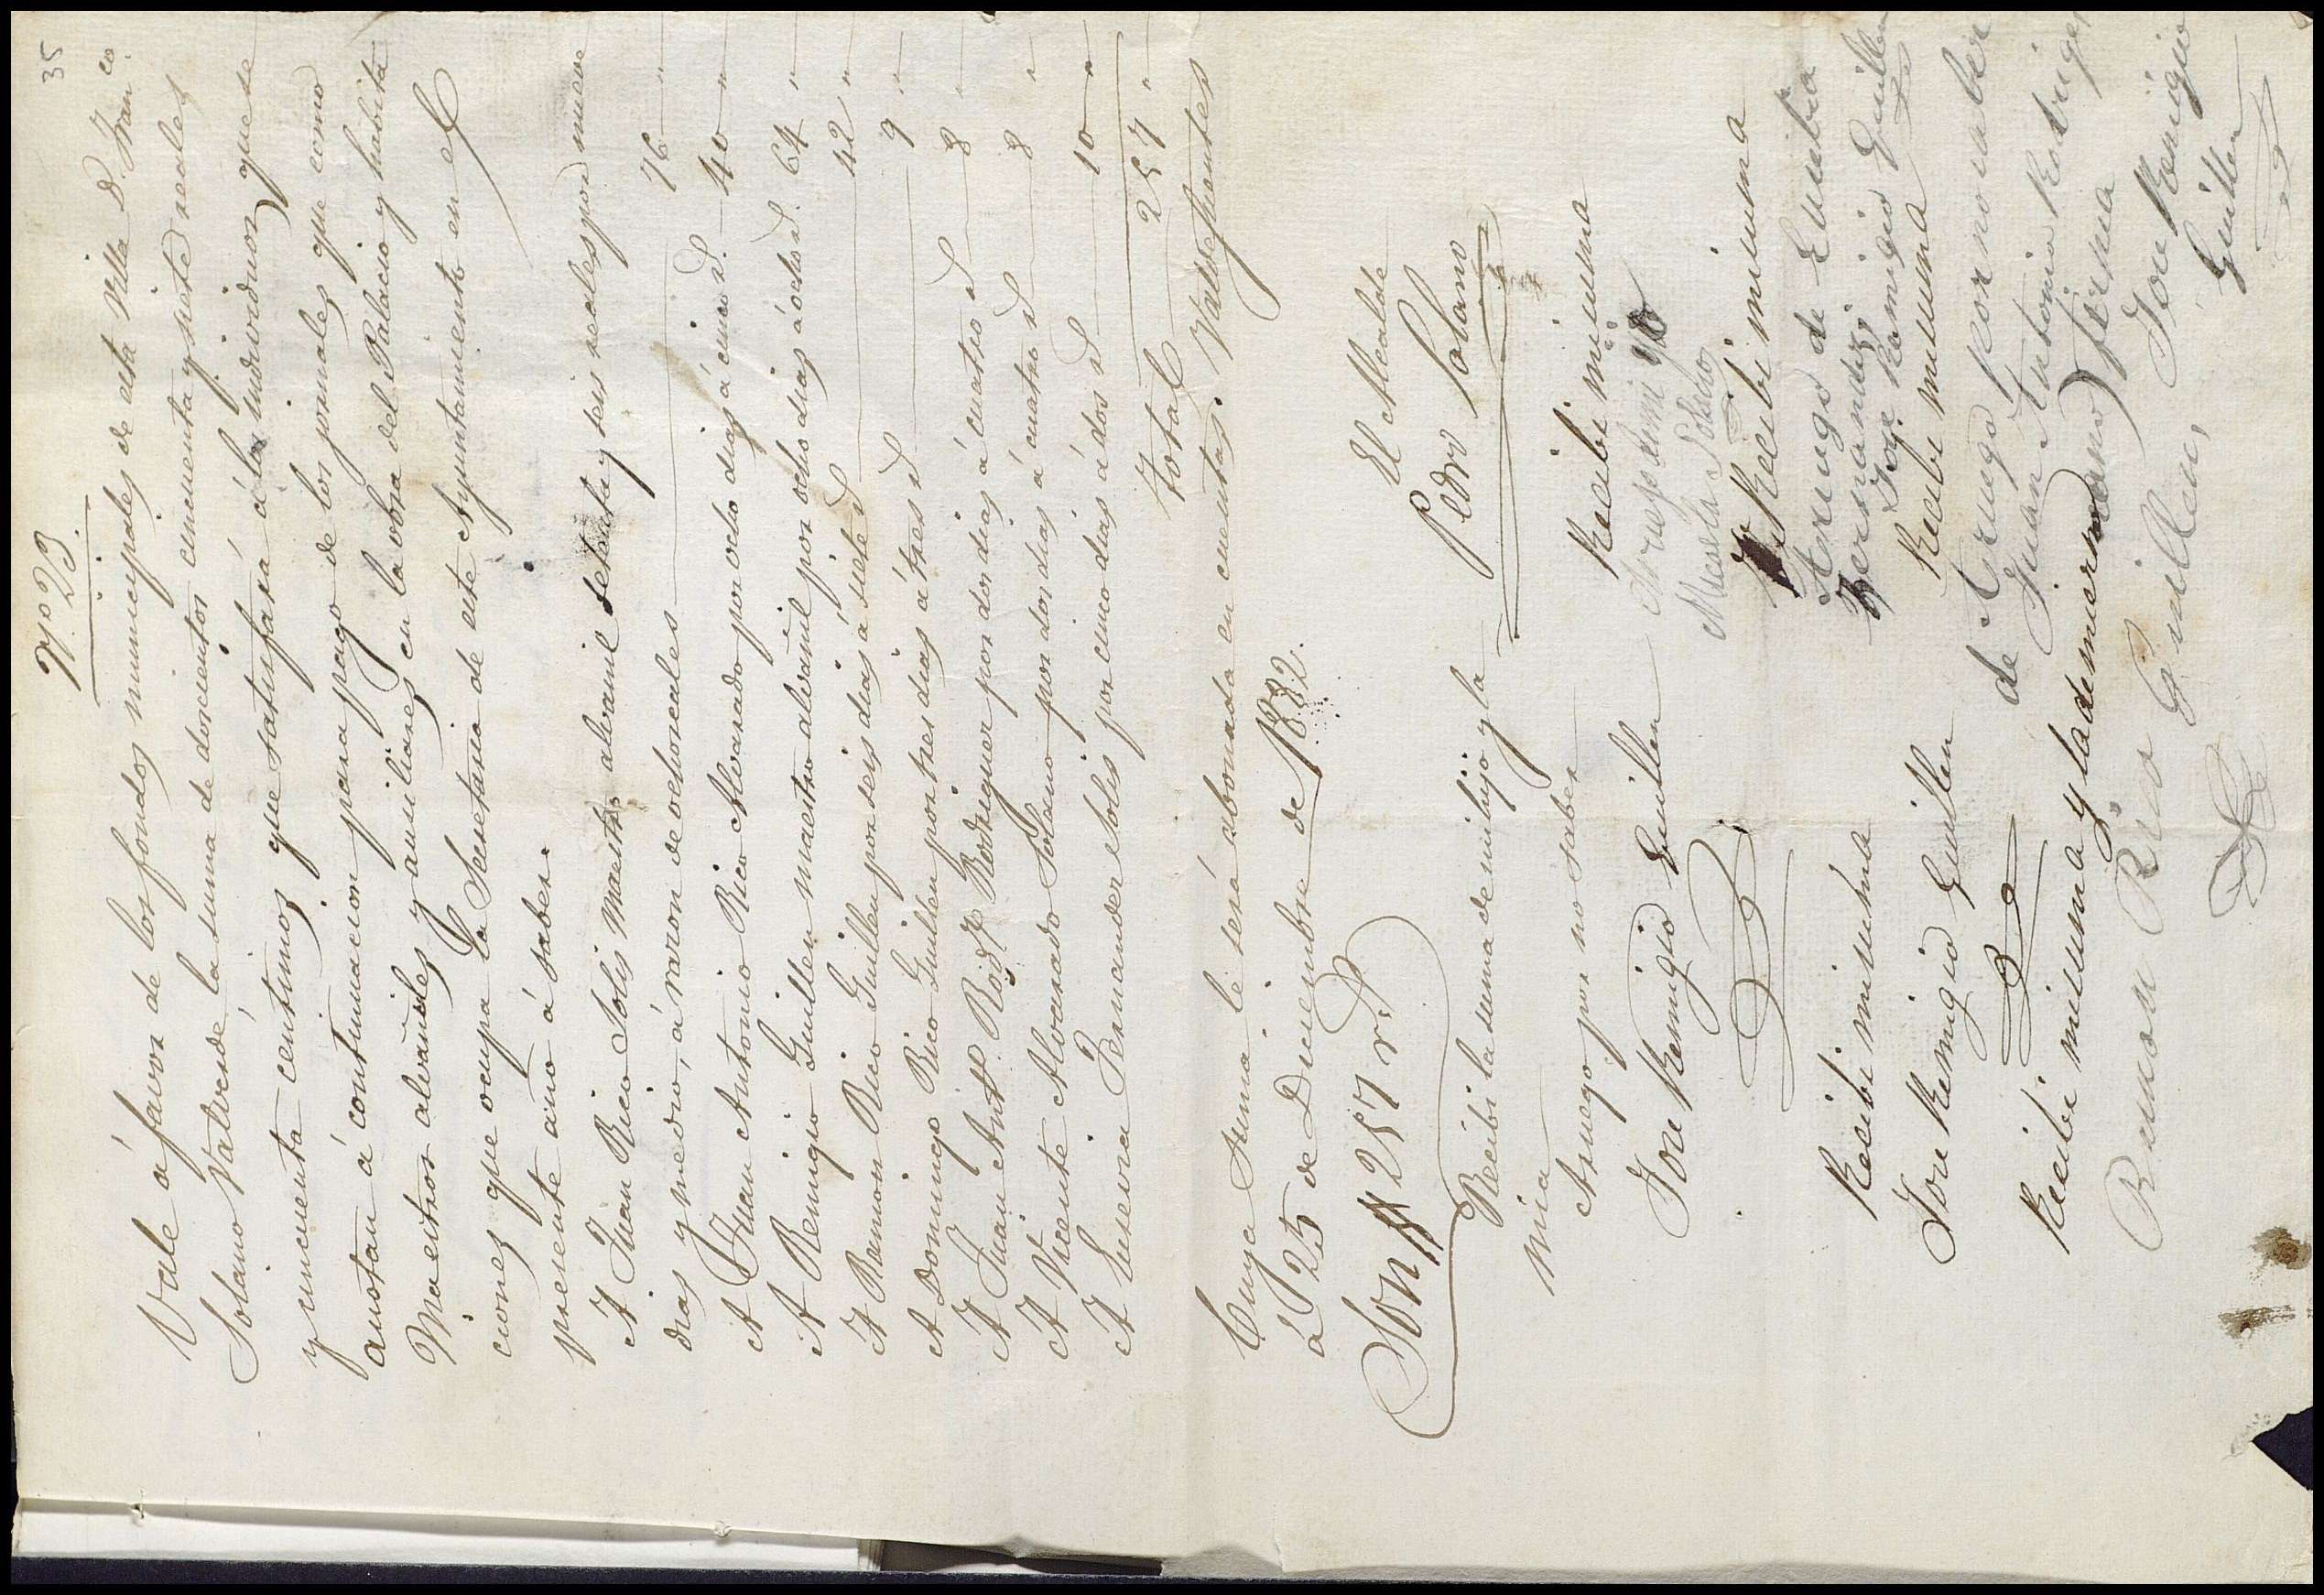 35
Nº 23.
Vale á favor de los fondos municipales de esta Villa D. Franco.
Solano Valverde la suma de doscientos cincuenta y siete reales
y cincuenta centimos que satisfará á los individuos que se
anotan á continuacion para pago de los jornales que como
Maestros alvañiles y ausiliares en la obra del Palacio y habita
ciones que ocupa la Secretaria de este Ayuntamiento en el
presente año á saber.
A Juan Rico Solis Maestro alvanil setenta y seis reales por nueve
dias y medio, á razon de ocho reales 76 "
A Juan Antonio Rico Alvarado por ocho dias á cinco id. 40 "
A Remigio Guillen maestro alvañil por ocho dias á ocho id. 64 "
A Ramon Rico Guillen por seis dias á siete id 42 "
A Domingo Rico Guillen por tres dias á tres id 9 "
A Juan Antº. Rodz Rodriguez por dos dias á cuatro id 8 "
A Vicente Alvarado Solano por dos dias á cuatro id 8 "
A Eusevia Fernandez Solis por cinco dias á dos id 10 "
Total 257 "
Cuya suma le será abonada en cuentas. Valdefuentes
á 25 de Diciembre de 1882.
El Alcalde
Pedro Solano
Son # 257 rs.
Recibi la suma de mi hijo y la
mia
Aruego por no saber
Jose Remigio Guillen
Recibi mi suma
Aruego de mi
Nicolas Solano
Recibi mi suma
Aruego de Eusebia
Fernandez
Jose Remigio Guillen
Recibi mi suma
Jose Remigio Guillen
Recibi mi suma
de Aruego por no saber
Juan Antonio Rodrigez
firma
Jose Remigio
Guillen
Recibi mi suma y la de mi ermano
Ramon Rico Guillen,